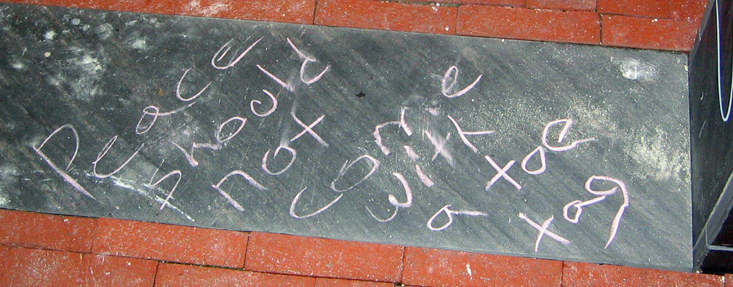 peace
should
not
come
with
a
toe
tag